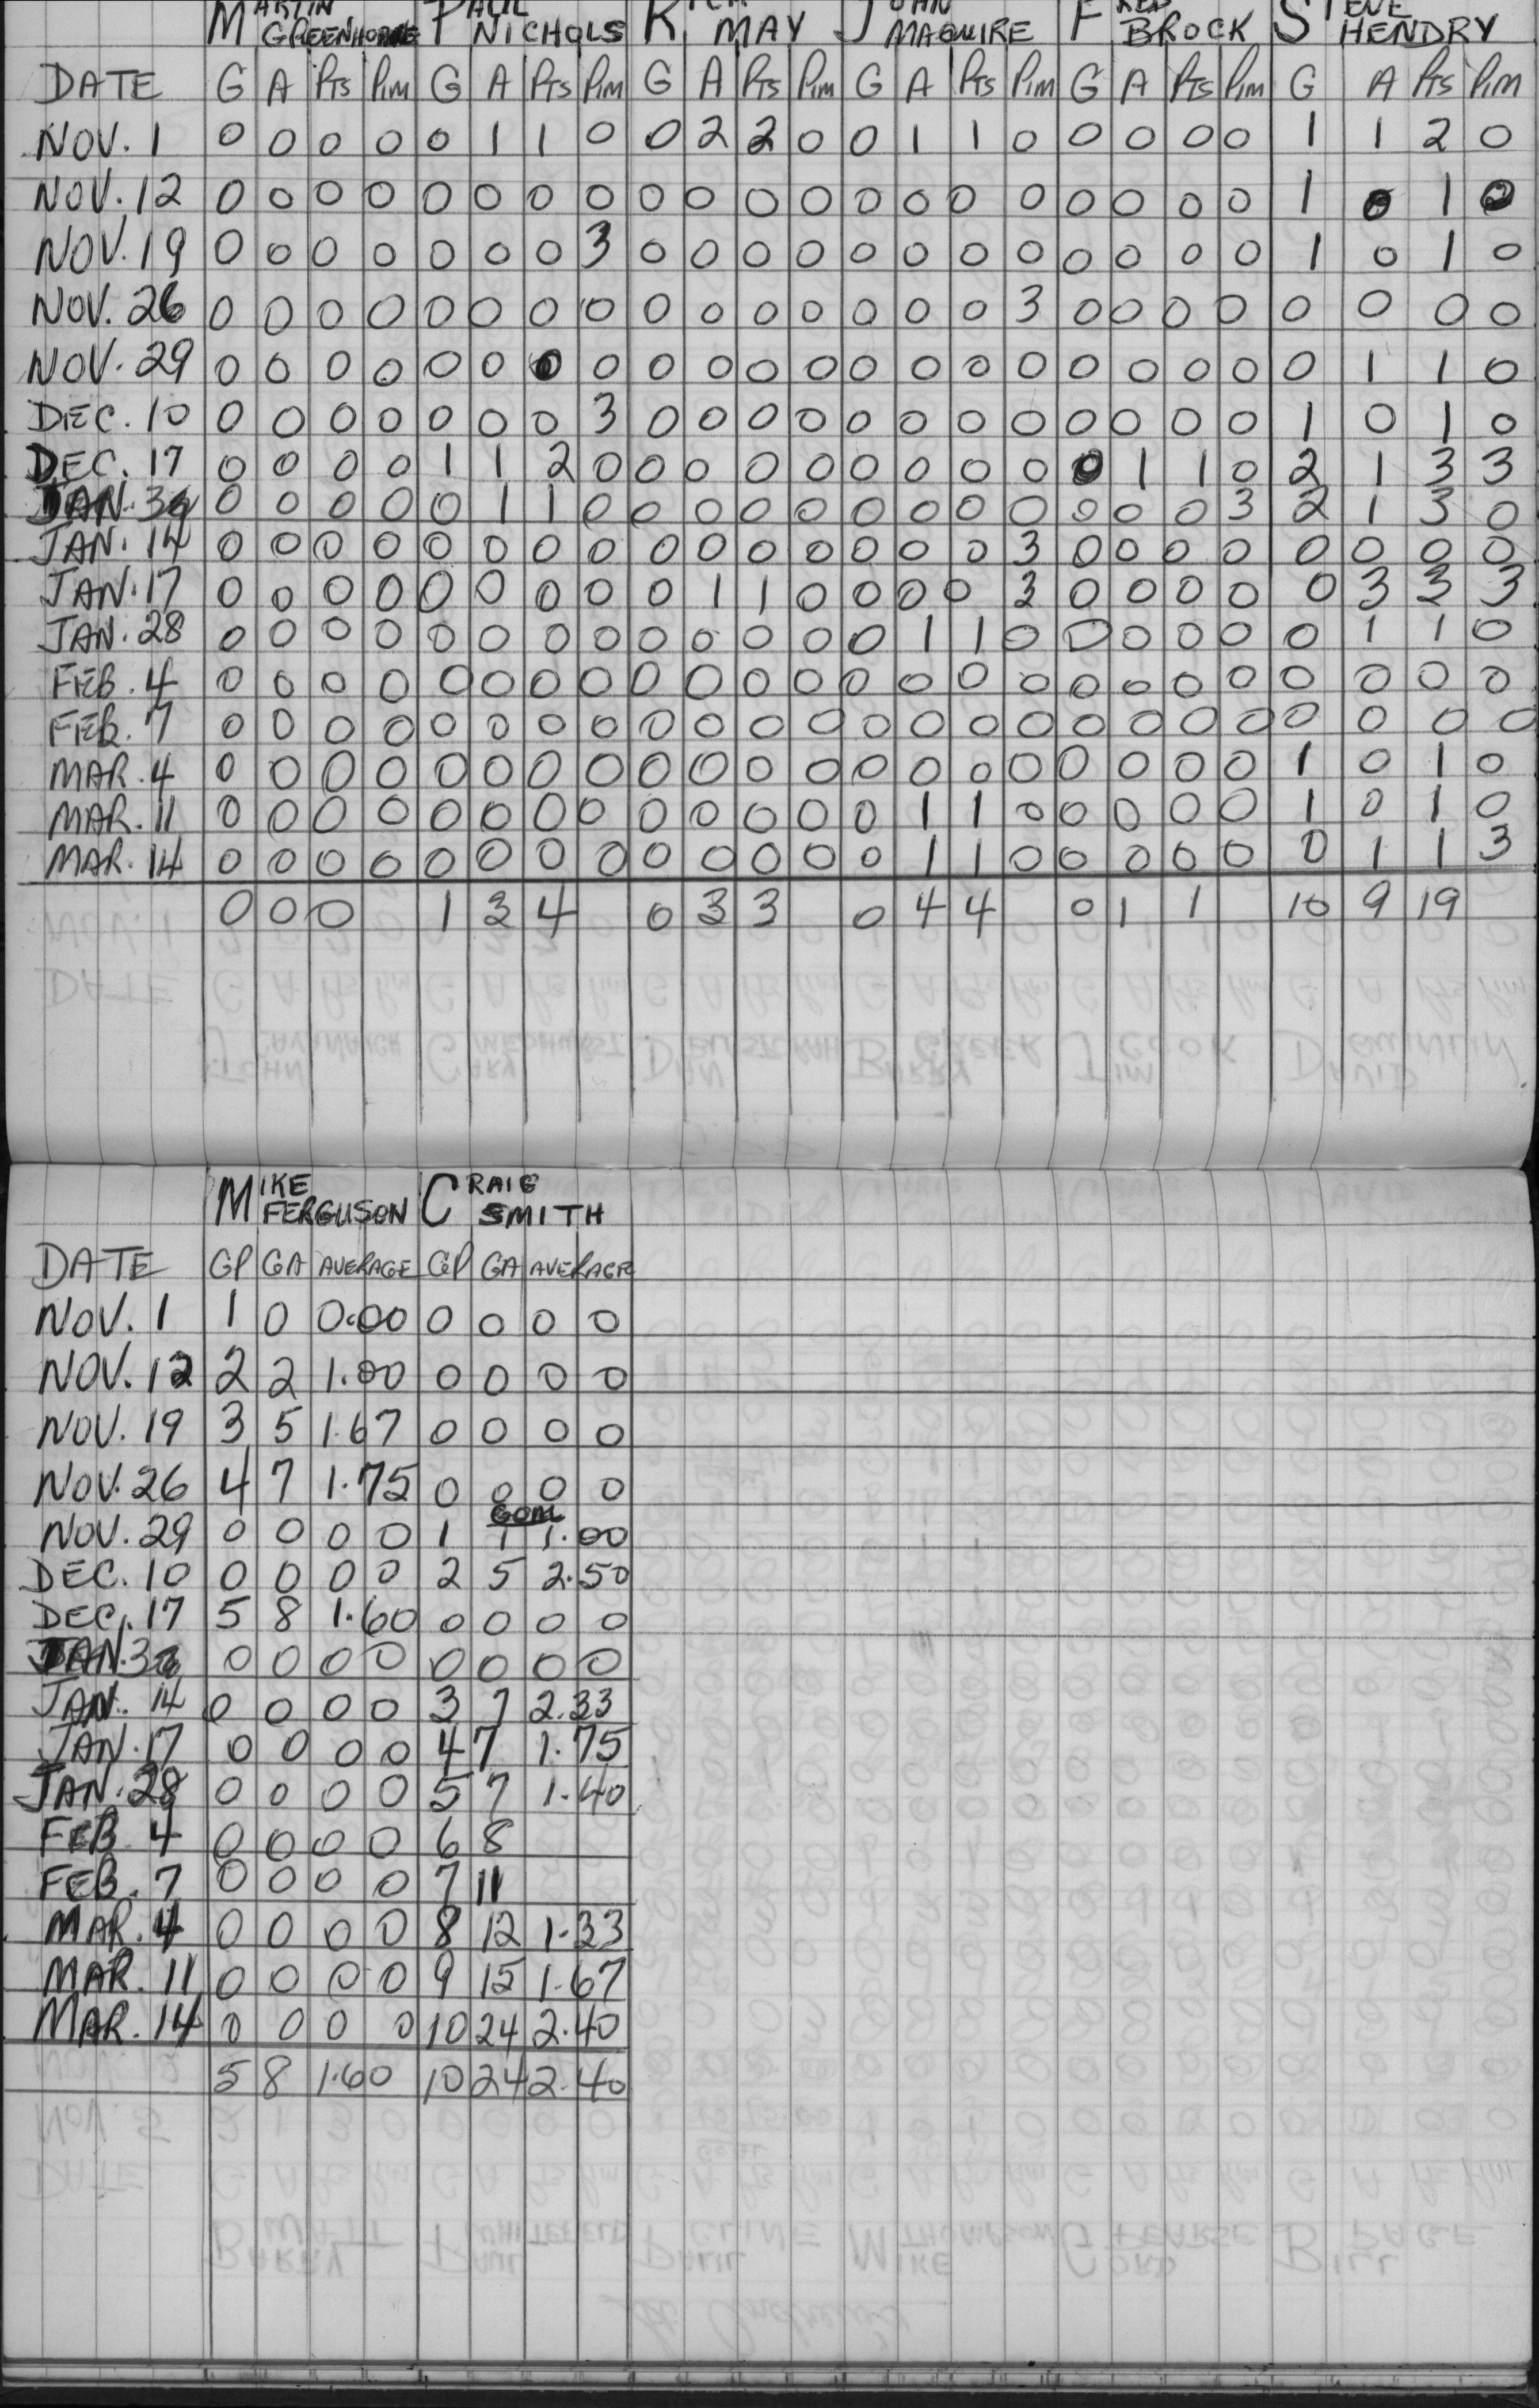 MARTIN PAUL RICK JOHN FRED STEVE
GREENHORNE NICHOLS MAY MAGUIRE BROCK HENDRY
DATE G A Pts Pim G A Pts Pim G A Pts Pim G A Pts Pim G A Pts Pim G A Pts Pim
NOV. 1 0 0 0 0 0 1 1 0 0 2 2 0 0 1 1 0 0 0 0 0 1 1 2 0
NOV. 12 0 0 0 0 0 0 0 0 0 0 0 0 0 0 0 0 0 0 0 0 1 0 1 0
NOV. 19 0 0 0 0 0 0 0 3 0 0 0 0 0 0 0 0 0 0 0 0 1 0 1 0
NOV. 26 0 0 0 0 0 0 0 0 0 0 0 0 0 0 0 3 0 0 0 0 0 0 0 0
NOV. 29 0 0 0 0 0 0 0 0 0 0 0 0 0 0 0 0 0 0 0 0 0 1 1 0
DEC. 10 0 0 0 0 0 0 0 3 0 0 0 0 0 0 0 0 0 0 0 0 1 0 1 0
DEC. 17 0 0 0 0 1 1 2 0 0 0 0 0 0 0 0 0 0 1 1 0 2 1 3 3
JAN. 0 0 0 0 0 1 1 0 0 0 0 0 0 0 0 0 0 0 0 3 2 1 3 0
JAN. 14 0 0 0 0 0 0 0 0 0 0 0 0 0 0 0 3 0 0 0 0 0 0 0 0
JAN. 17 0 0 0 0 0 0 0 0 0 1 1 0 0 0 0 3 0 0 0 0 0 3 3 3
JAN. 28 0 0 0 0 0 0 0 0 0 0 0 0 0 1 1 0 0 0 0 0 0 1 1 0
FEB. 4 0 0 0 0 0 0 0 0 0 0 0 0 0 0 0 0 0 0 0 0 0 0 0 0
FEB. 7 0 0 0 0 0 0 0 0 0 0 0 0 0 0 0 0 0 0 0 0 0 0 0 0
MAR. 4 0 0 0 0 0 0 0 0 0 0 0 0 0 0 0 0 0 0 0 0 1 0 1 0
MAR. 11 0 0 0 0 0 0 0 0 0 0 0 0 0 1 1 0 0 0 0 0 1 0 1 0
MAR. 14 0 0 0 0 0 0 0 0 0 0 0 0 0 1 1 0 0 0 0 0 0 1 1 3
0 0 0 1 3 4 0 3 3 0 4 4 0 1 1 10 9 19
MIKE CRAIG
FERGUSON SMITH
DATE GP GA AVERAGE GP GA AVERAGE
NOV. 1 1 0 0.00 0 0 0 0
NOV. 12 2 2 1.00 0 0 0 0
NOV. 19 3 5 1.67 0 0 0 0
NOV. 26 4 7 1.75 0 0 0 0
NOV. 29 0 0 0 0 1 1 1.00
DEC. 10 0 0 0 0 2 5 2.50
DEC. 17 5 8 1.60 0 0 0 0
JAN. 0 0 0 0 0 0 0 0
JAN. 14 0 0 0 0 3 7 2.33
JAN. 17 0 0 0 0 4 7 1.75
JAN. 28 0 0 0 0 5 7 1.40
FEB 4 0 0 0 0 6 8
FEB. 7 0 0 0 0 7 11
MAR. 4 0 0 0 0 8 12 1.33
MAR. 11 0 0 0 0 9 15 1.67
MAR. 14 0 0 0 0 10 24 2.40
5 8 1.60 10 24 2.40